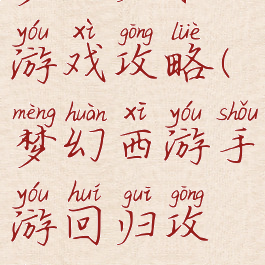 yóu xì gōng lüè
游戏攻略(
mèng huàn xī yóu shǒu
梦幻西游手
yóu huí guī gōng
游回归攻